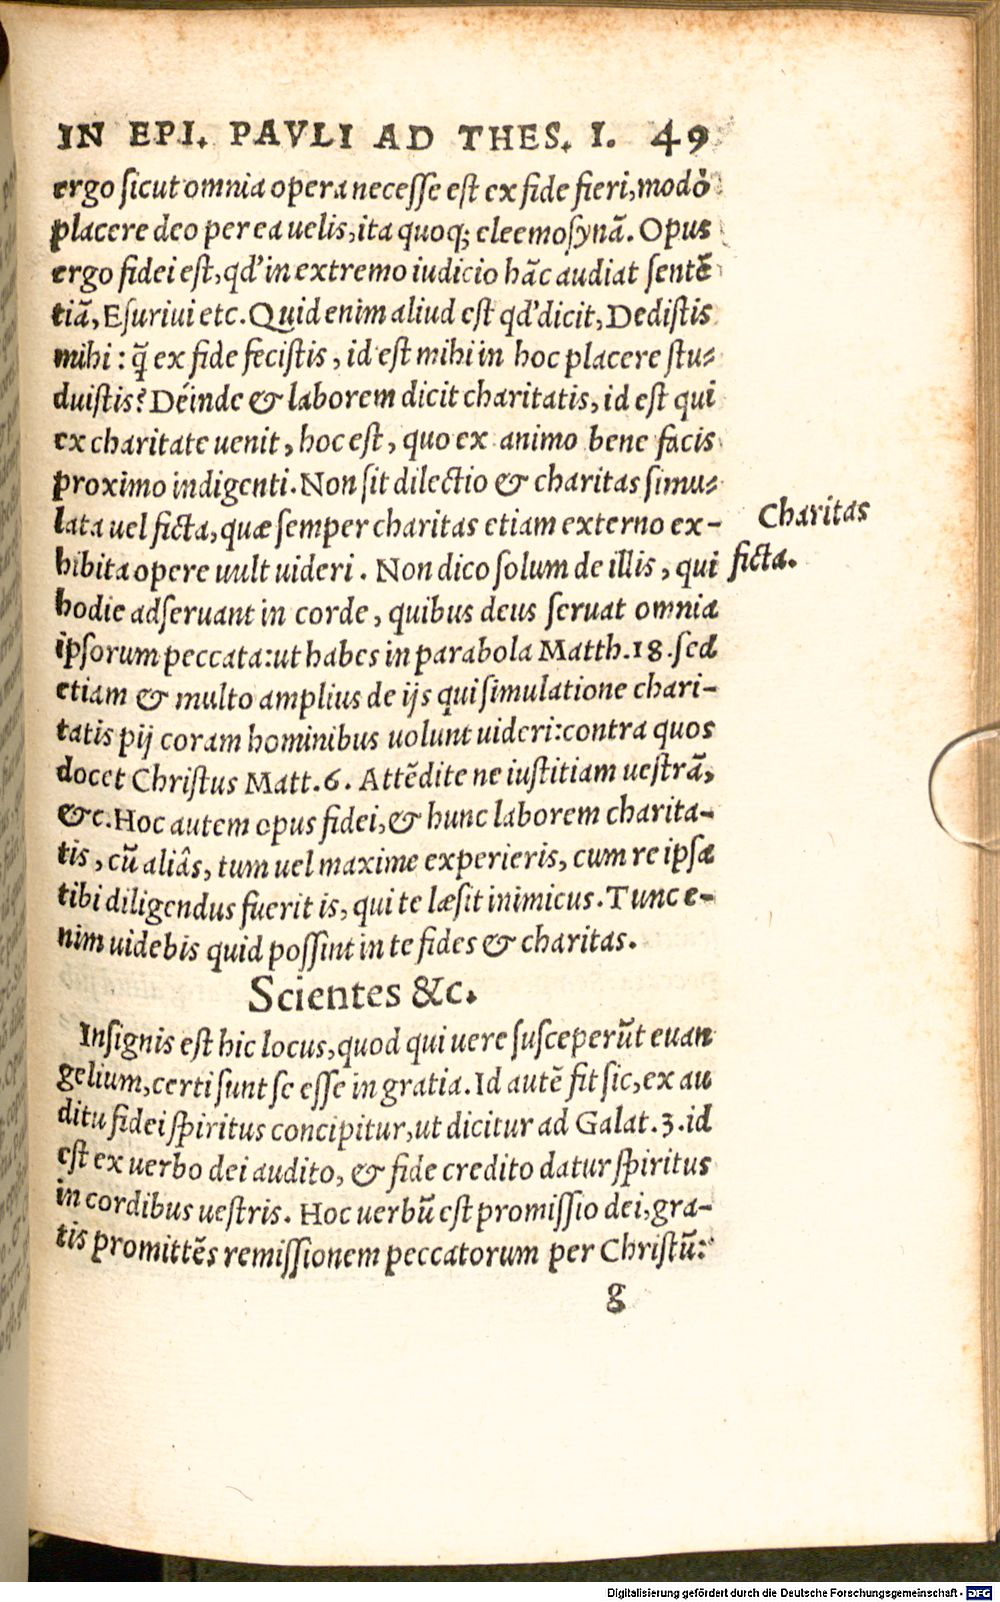 IN EPI. PAVLI AD THES. I. 49
ergo ſicut omnia opera neceſſe eſt ex fide fieri, modò
placere deo per ea uelis, ita quoq; eleemoſynā. Opus
ergo fidei eſt, qd' in extremo iudicio hāc audiat ſentē
tiā, Eſuriui etc. Quid enim aliud eſt qd' dicit, Dediſtis
mihi: q̃ ex fide feciſtis, id eſt mihi in hoc placere ſtu-
duiſtis? Deinde & laborem dicit charitatis, id eſt qui
ex charitate uenit, hoc eſt, quo ex animo bene facis
proximo indigenti. Non ſit dilectio & charitas ſimu-
lata uel ficta, quæ ſemper charitas etiam externo ex-
Charitas
hibita opere uult uideri. Non dico ſolum de illis, qui
ficta.
hodie adſeruant in corde, quibus deus ſeruat omnia
ipſorum peccata: ut habes in parabola Matth. 18. ſed
etiam & multo amplius de ijs qui ſimulatione chari-
tatis pij coram hominibus uolunt uideri: contra quos
docet Chriſtus Matt. 6. Attēdite ne iuſtitiam ueſtrā,
&c. Hoc autem opus fidei, & hunc laborem charita-
tis, cū aliâs, tum uel maxime experieris, cum re ipſa
tibi diligendus fuerit is, qui te læſit inimicus. Tunc e-
nim uidebis quid poſſint in te fides & charitas.
Scientes &c.
Inſignis eſt hic locus, quod qui uere ſuſceperūt euan
gelium, certi ſunt ſe eſſe in gratia. Id autē fit ſic, ex au
ditu fidei ſpiritus concipitur, ut dicitur ad Galat. 3. id
eſt ex uerbo dei audito, & fide credito datur ſpiritus
in cordibus ueſtris. Hoc uerbū eſt promiſſio dei, gra-
tis promittēs remiſſionem peccatorum per Chriſtū:
g
Digitalisierung gefördert durch die Deutsche Forschungsgemeinschaft - DFG